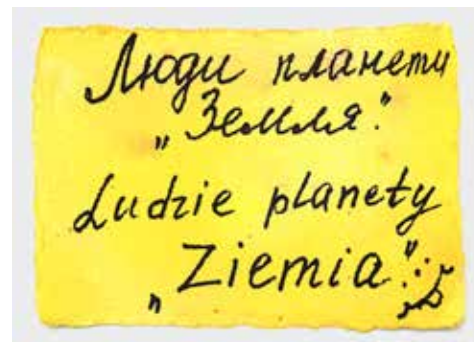 Люди планети
„Земля."
Ludzie planety
„Ziemia"